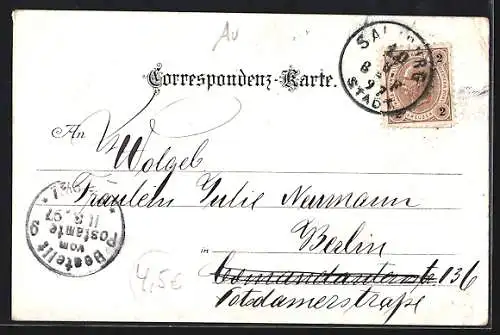 Au
SALZBURG
STADT
10
8 8
97
2 2
KREUZER
2 2
Correspondenz-Karte.
An
Wolgeb
Fräulein Julie Neumann
in Berlin
Comandantenstr 136
Potsdamerstraße
Bestellt
vom
Postamte 9
11.8.97
4,5€